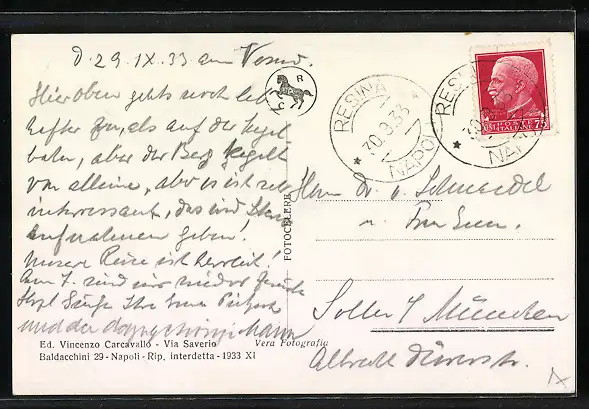 d. 29. IX. 33 am Vesuv.
Hier oben gehts noch leb
hafter zu, als auf der Kegel
bahn, aber der Berg kegelt
von alleine, aber es ist sehr
interessant, das wird
Aufnahmen geben!
Unsere Reise ist herrlich!
Am 7. sind wir wieder
Ihre
und der
C R C
RESINA
30.9.33
NAPOLI
RESINA
30.9.33
NAPOLI
POSTE ITALIANE
75
FOTOCELERE
Herrn Dr. v. Schmaedel
u. Frau Gem.
Solln / München
Albrecht Dürerstr.
Ed. Vincenzo Carcavallo - Via Saverio
Baldacchini 29 - Napoli - Rip. interdetta - 1933 XI
Vera Fotografia